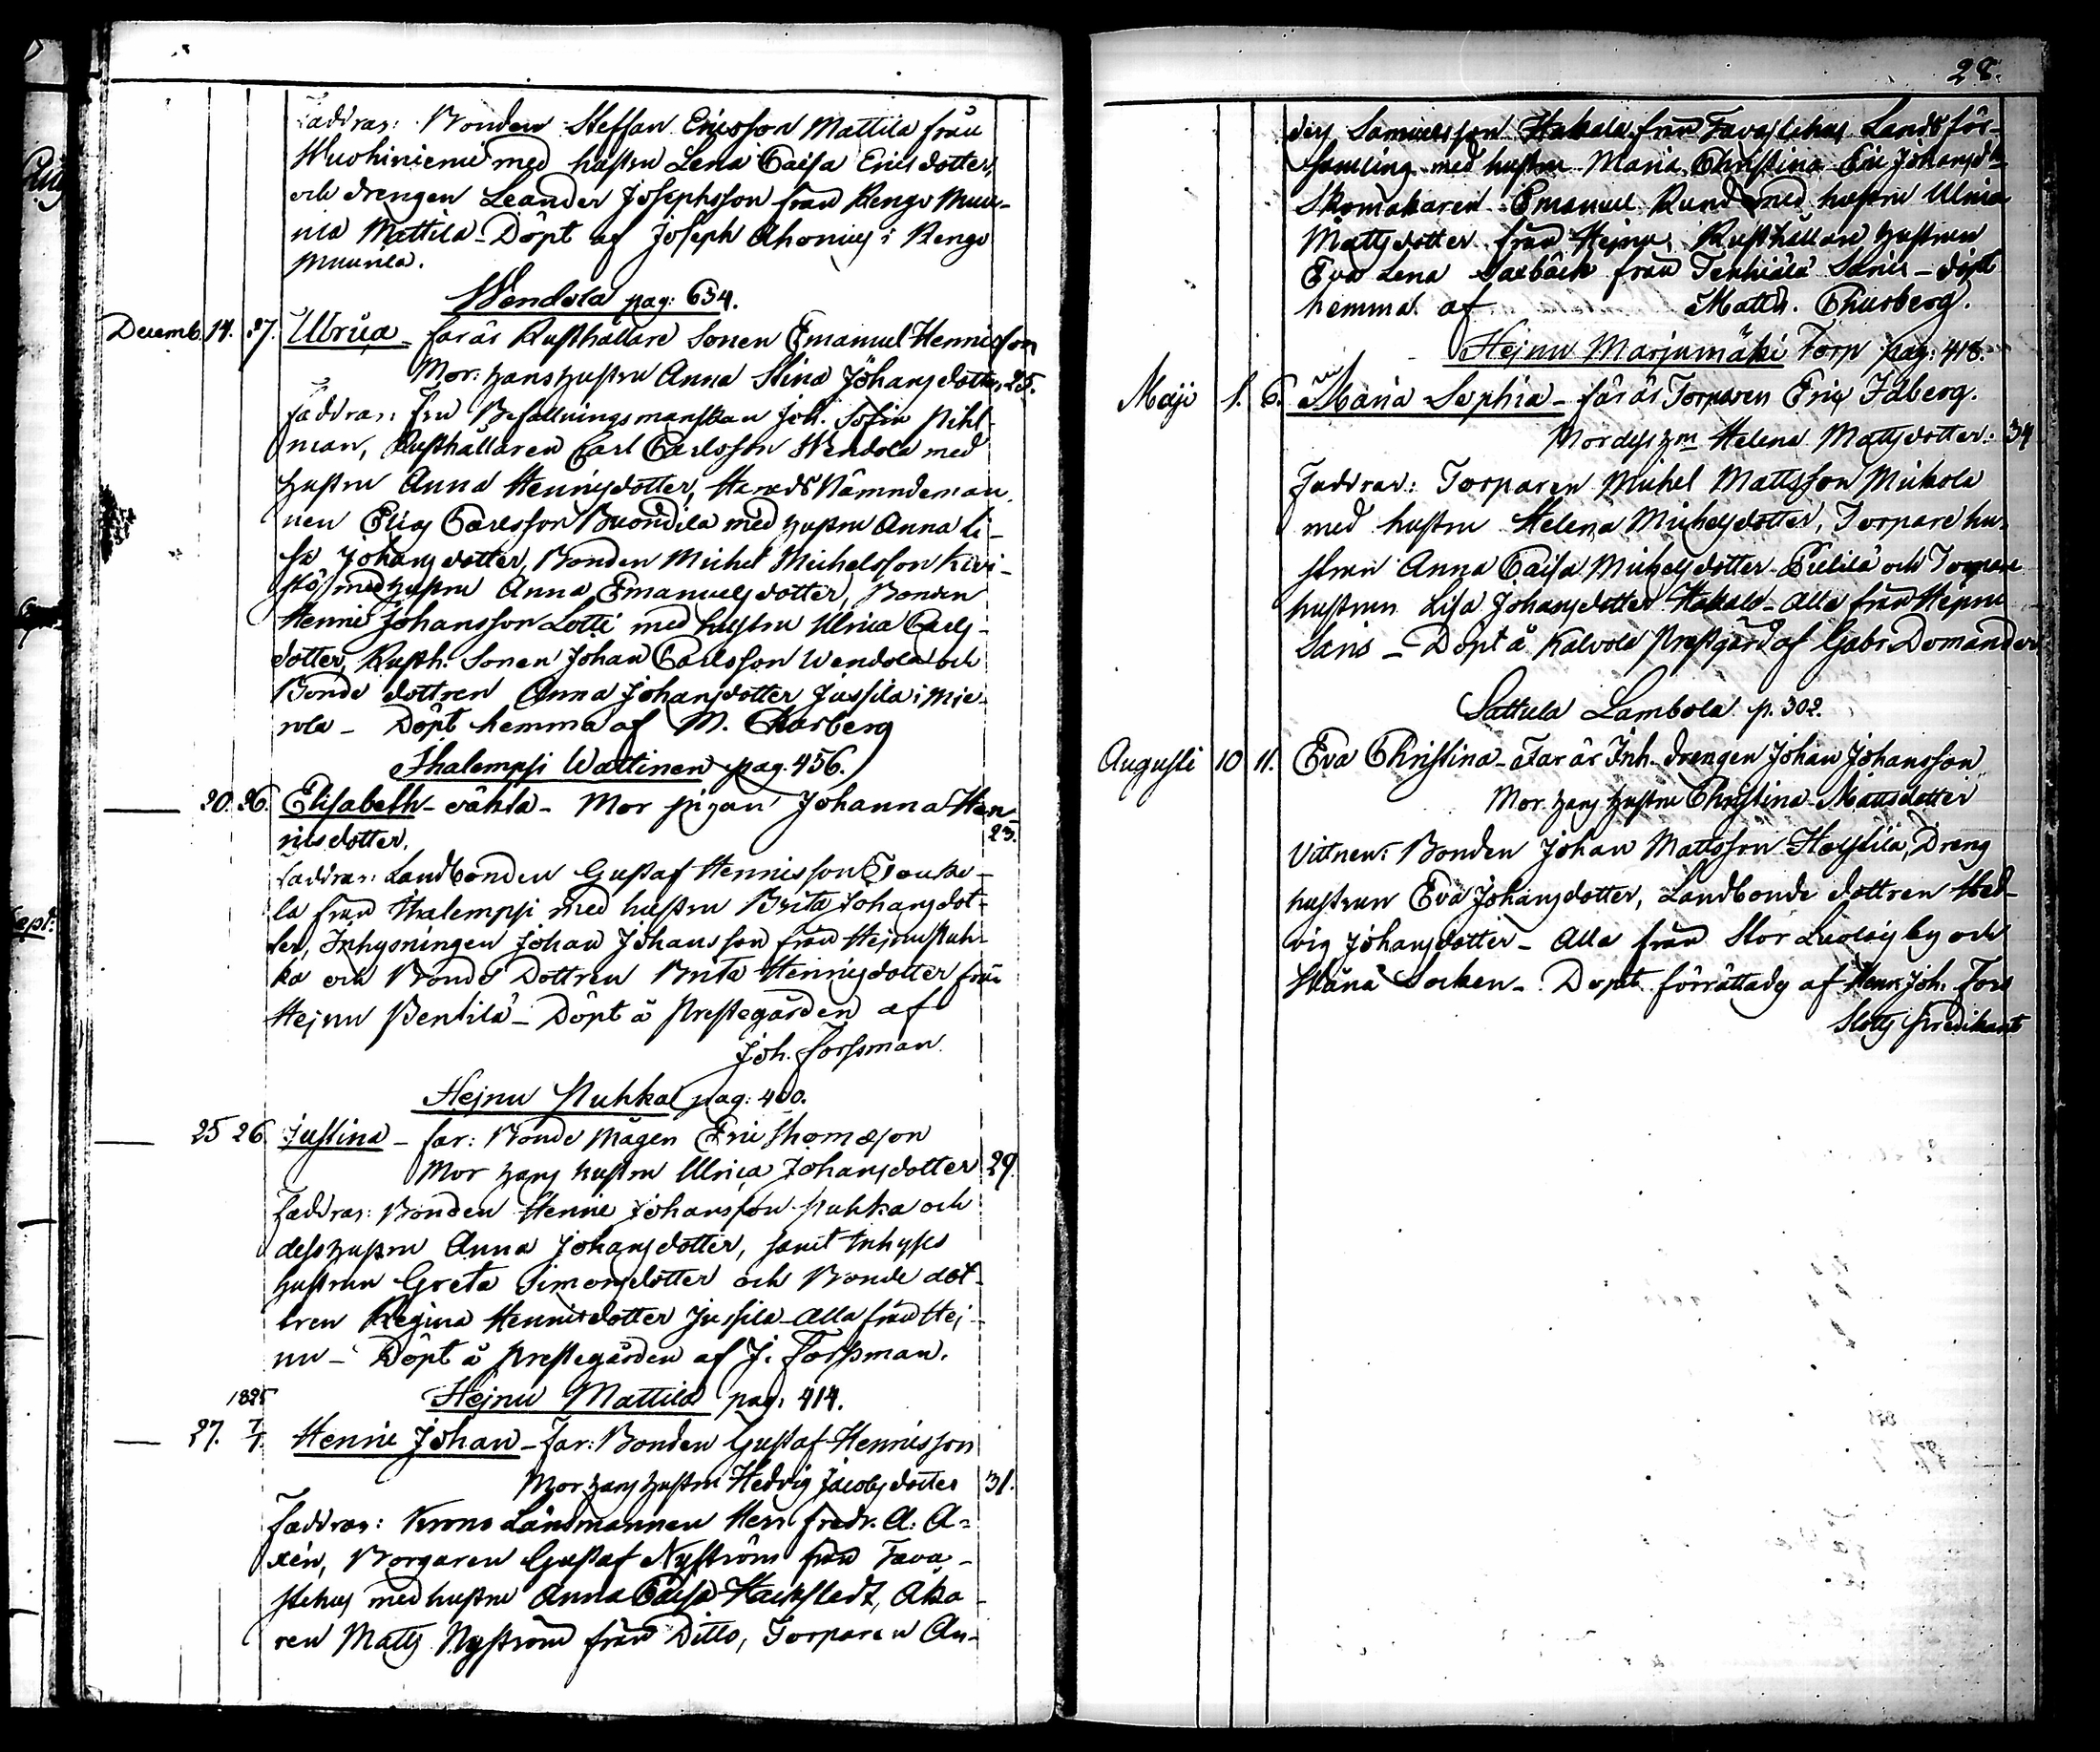 Faddrar: Bonden Steffan Ericsson Mattila från
Wuohiniemi med hustru Lena Caisa Ericsdotter,
och drengen Leander Josephsson från Rengo Muu-
nia Mattila - Döpt af Joseph Ahonius i Rengo
Muunia.
Wendola pag: 634.
Decemb. 14. 27. Ulrica - far är Rusthållare Sonen Emanuel Hennicsson
Mor: hans hustru Anna Stina Johansdotter 25.
Faddrar: fru Befallningsmanskan Joh. Sofia Pihl-
man, Rusthållaren Carl Carlsson Wendola med
hustru Anna Henricsdotter, HäradsNämndeman-
nen Elias Carlsson Buondila med hustru Anna Li-
sa Johansdotter, Bonden Michel Michelsson Kivi-
stö med hustru Anna Emanuelsdotter, Bonden
Henric Johansson Lotti med hustru Ulrica Carls-
dotter, Rusth: Sonen Johan Carlsson Wendola och
Bonde dottren Anna Johansdotter Jussila i Mie-
nola - Döpt hemma af M. Churberg
Ihalempsi Wattinen pag. 456.
20. 26. Elisabeth - oäkta - Mor pigan Johanna Hen-
ricsdotter. 23.
Faddrar: Landbonden Gustaf Henricsson
la från Ihalempsi med hustru Brita Johansdot-
ter, Inhysningen Johan Johansson från Hejnu Puh-
ka och Bonde Dottren Brita Henricsdotter från
Hejnu Pentilä - Döpt å Prestegården af
Joh. Forssman.
Hejnu Puhka pag: 400.
25 26 Justina - far: Bonde mågen Eric Thomasson
Mor hans hustru Ulrica Johansdotter 29.
Faddrar: Bonden Henric Johansson Puhka och
dess hustru Anna Johansdotter, samt Inhyses
hustrun Greta Simonsdotter och Bonde dot-
tren Regina Henricsdotter Jussila - Alla från Hej-
nu - Döpt å Prestegården af J. Forssman.
1825
Hejnu Mattila pag: 414.
27. 7/1. Henric Johan - far: Bonden Gustaf Henricsson
Mor hans hustru Hedvig Jacobsdotter 31.
Faddrar: Krono Länsmannen Herr Fredr. A. A-
xén, Borgaren Gustaf Nyström från Tava-
stehus med hustru Anna Caisa Hackstedt, Åka-
ren Matts Nyström från Ditto, Torparen An-
28.
ders Samuelsson Hakala från Tavastehus Lands för-
samling med hustru Maria Christina Eric Johansdr
Skomakaren Emanuel Rund med hustru Ulrica
Mattsdotter från Hejnu, Rusthållare hustrun
Eva Lena Saxbäck från Tenhiälä Säris - döpt
hemma af Matth. Churberg.
Hejnu Marjumäki Torp pag: 418.
Maji 1. 6. Maria Sophia - far är Torparen Eric Idberg.
Mor dess hru Helena Mattsdotter: 34
Faddrar: Torparen Michel Mattsson Mickola
med hustru Helena Michelsdotter, Torpare hu-
strun Anna Caisa Michelsdotter och Torpare
hustrun Lisa Johansdotter Hakala - Alla från Hejnu
Säris - Döpt å Kalvola Prestgård af Gabr. Domander
Sattula Lambola p. 302.
Augusti 10 11. Eva Christina - Far är Inh. drengen Johan Johansson
Mor hans hustru Christina Mattsdotter
Vittnen: Bonden Johan Mattsson Dreng
hustrun Eva Johansdotter, Landbonde dottren Hed-
vig Johansdotter - Alla från Stor by och
Wånå Socken - Dopet förrättades af Henr. Joh. Fors
Slotts Predikant